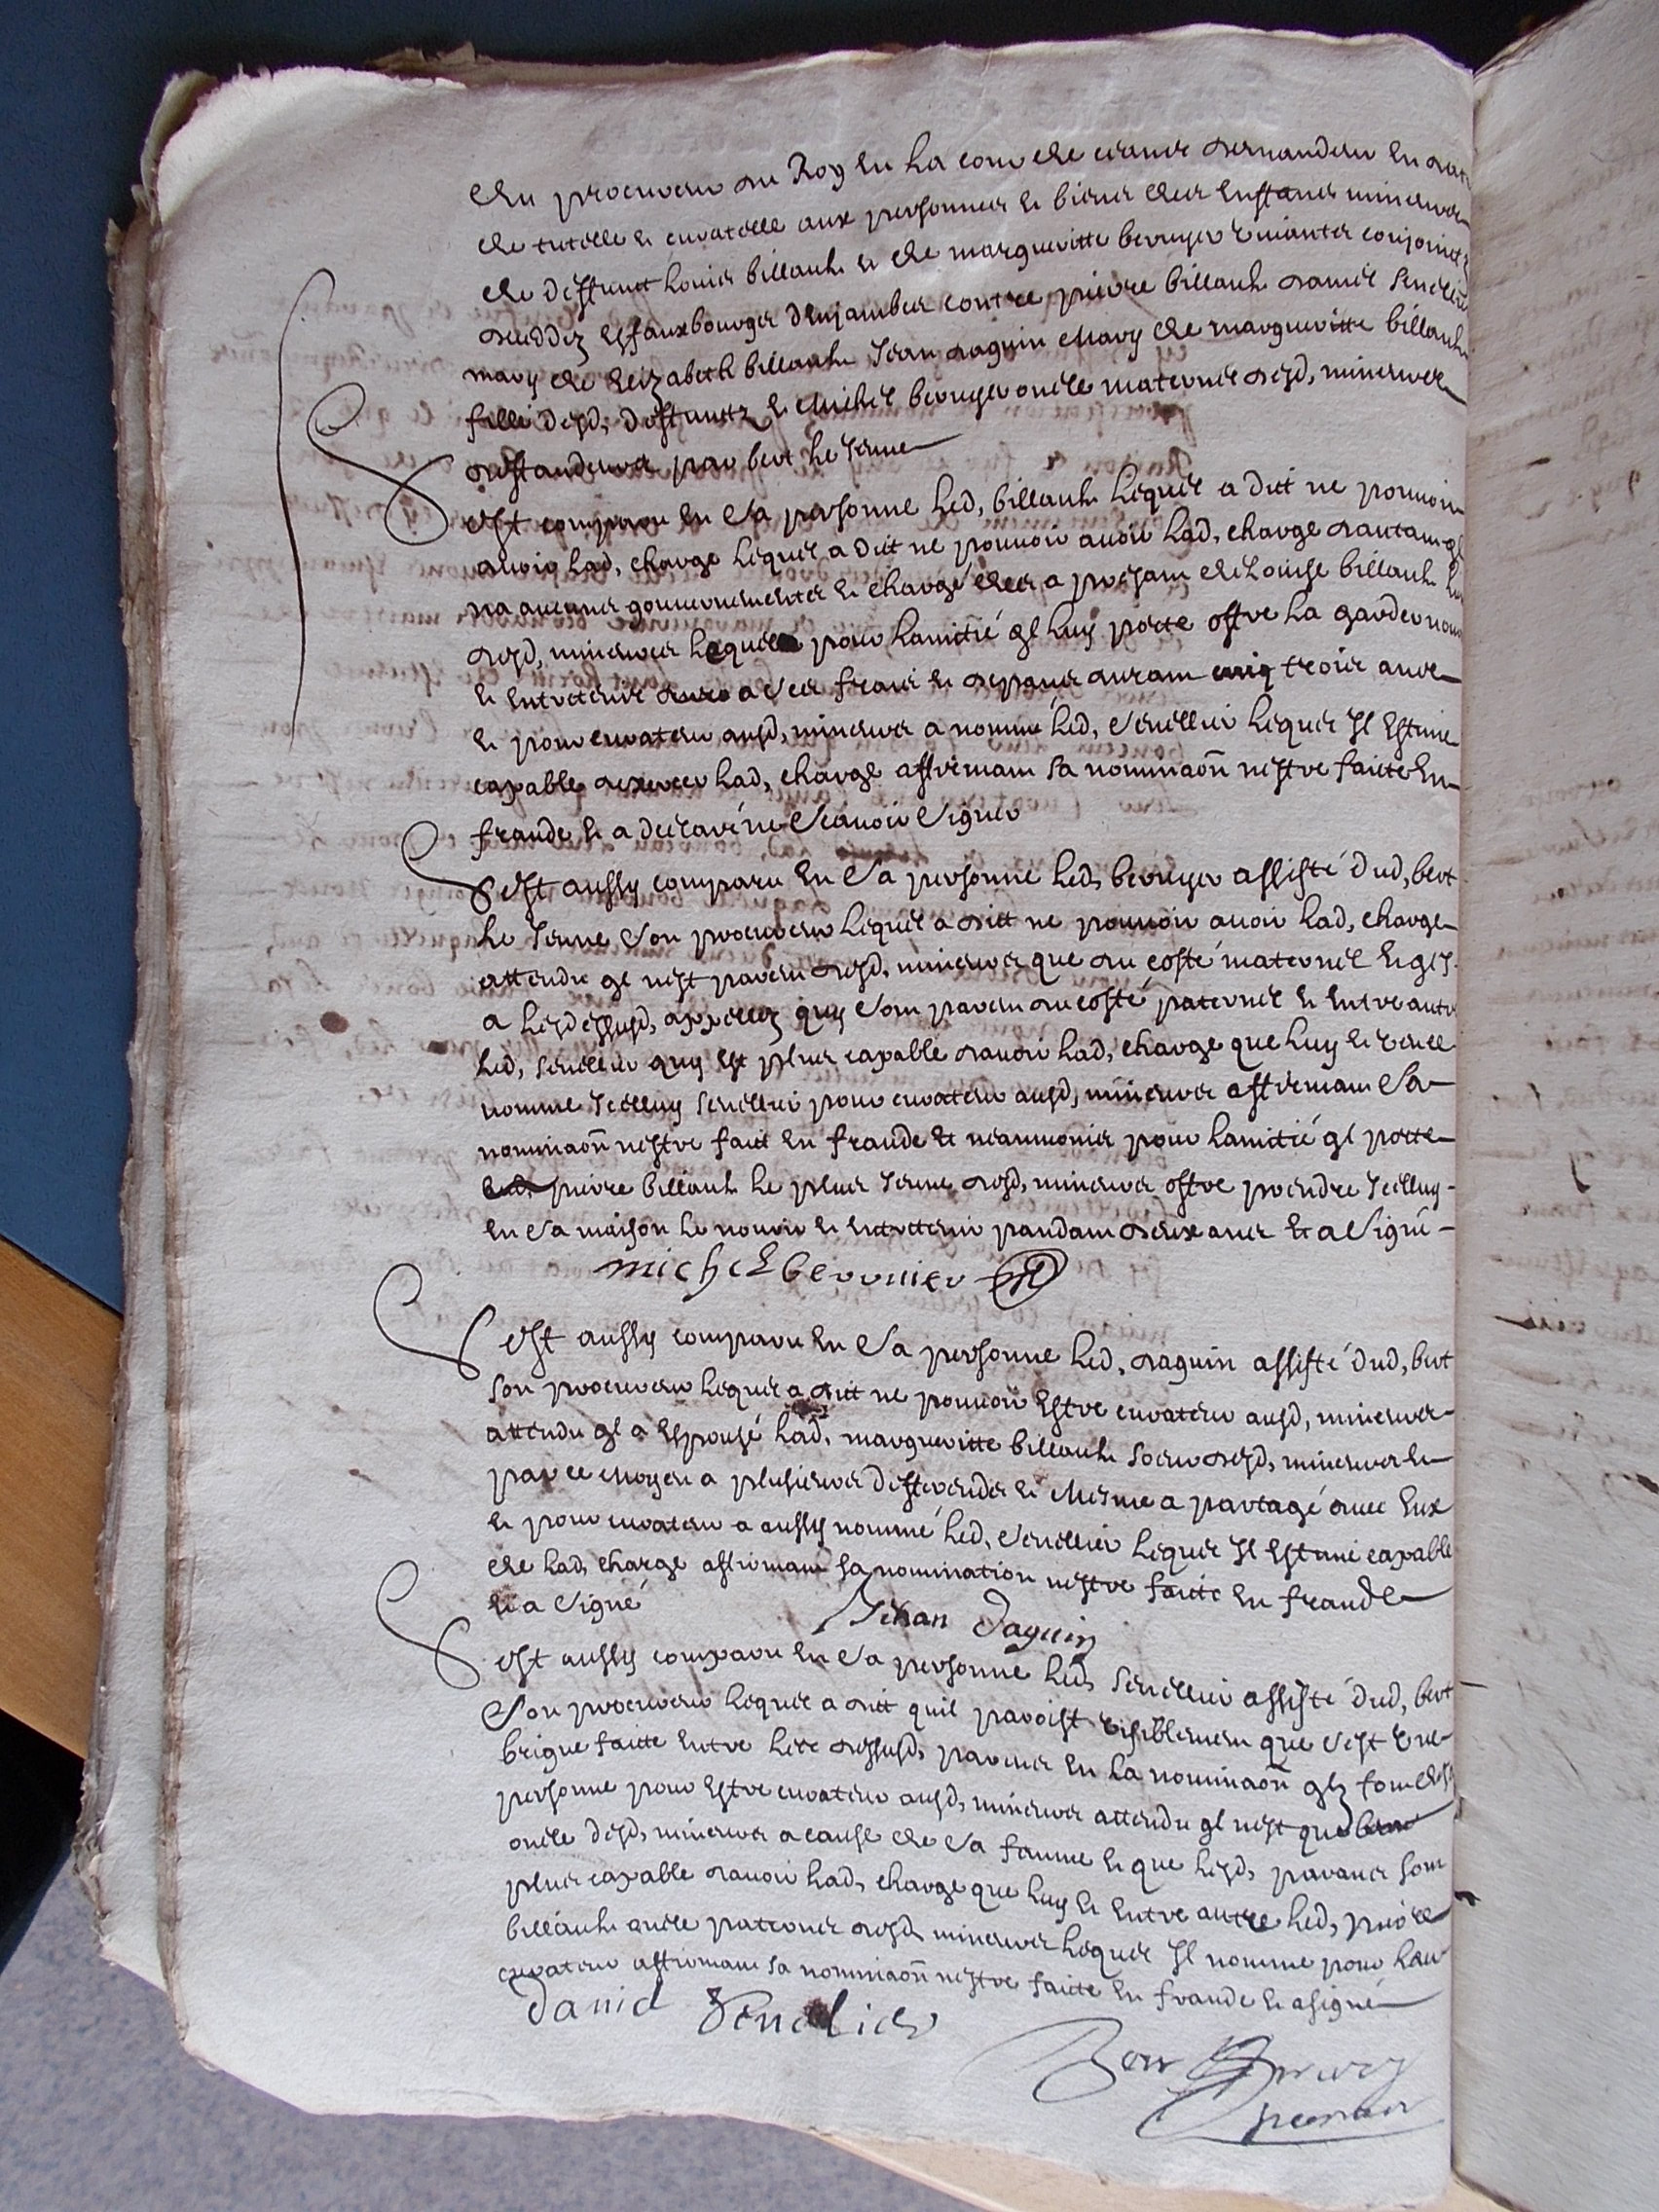 Du procureur du Roy en la cour de ceans demandeur en dat
de tutelle et curatelle aux personnes et biens des enfans mineurs
de deffunct Louis billault et de margueritte berruyer vivantz conjoinctz
deceddez es fauxbourgs d'enjambes contre pierre billault daniel Senellier
mary de Elizabeth billault Jean daguin mary de margueritte billault
fille desd, deffunctz et michel berruyer oncle maternel desd, mineurs
deffandeurs par bert le Jeune
Est comparu en sa personne led, billault lequel a dict ne pouvoir
avoir lad, charge lequel a dict ne pouvoir avoir lad, charge dautant ql
na aucunes gouvernementes et charge des a presant de Louise billault
desd, mineurs lequel pour lamitié ql luy porte offre la garder nour
et entretenir a ses frais et despans durant trois ans
et pour curateur ausd, mineurs a nommé led, Senellier lequel Il Estime
capable dexercer lad, charge affirmant sa nominaon nestre faicte En
fraude et a declaré ne scavoir signer
Est aussy comparu en sa personne led, berruyer assisté dud, bert
le Jeune son procureur lequel a dict ne pouvoir avoir lad, charge
attendu ql nest parent desd, mineurs que du costé maternel et ql y
a lesd dessusd, appellez quy sont parens du costé paternel et entre autre
led, Senellier quy est plus capable davoir lad, charge que luy et
nomme Icelluy Senellier pour curateur ausd, mineurs affirmant sa
nominaon nestre faict en fraude Et neanmoins pour lamitié ql porte
pierre billault le plus Jeune desd, mineurs offre prendre Icelluy
en sa maison le nourir et entretenir pandant deux ans Et a signé
michel berruier
Est aussy comparu en sa personne led, daguin assisté dud, bert
son procureur lequel a dict ne pouvoir Estre curateur ausd, mineurs
attendu ql a Espousé lad, margueritte billault soeur desd, mineurs et
par ce moyen a plusieurs differendes et mesme a partagé avec Eux
et pour curateur a aussy nommé led, Senellier lequel Il Estime capable
de lad, charge affirmant sa nomination nestre faicte En fraude
et a signé
Jehan Daguin
Est aussy comparu en sa personne led, Senellier assisté dud, bert
son procureur lequel a dict quil paroist visiblement que cest une
brigue faitte Entre les dessusd, parens En la nominaon qlz font de sa
personne pour Estre curateur ausd, mineurs attendu ql nest que
oncle desd, mineurs a cause de sa famme et que lesd, parans sont
plus capable davoir lad, charge que luy et Entre autre led, pierre
billault oncle paternel desd, mineurs lequel Il nomme pour leur
curateur affirmant sa nominaon nestre faicte En fraude et a signé
daniel Senellier